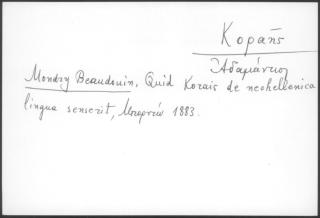 Κοραῆς
Ἀδαμάντιος
Mondry Beaudouin, Quid Koraïs de neohellenica
lingua senserit, 1883.